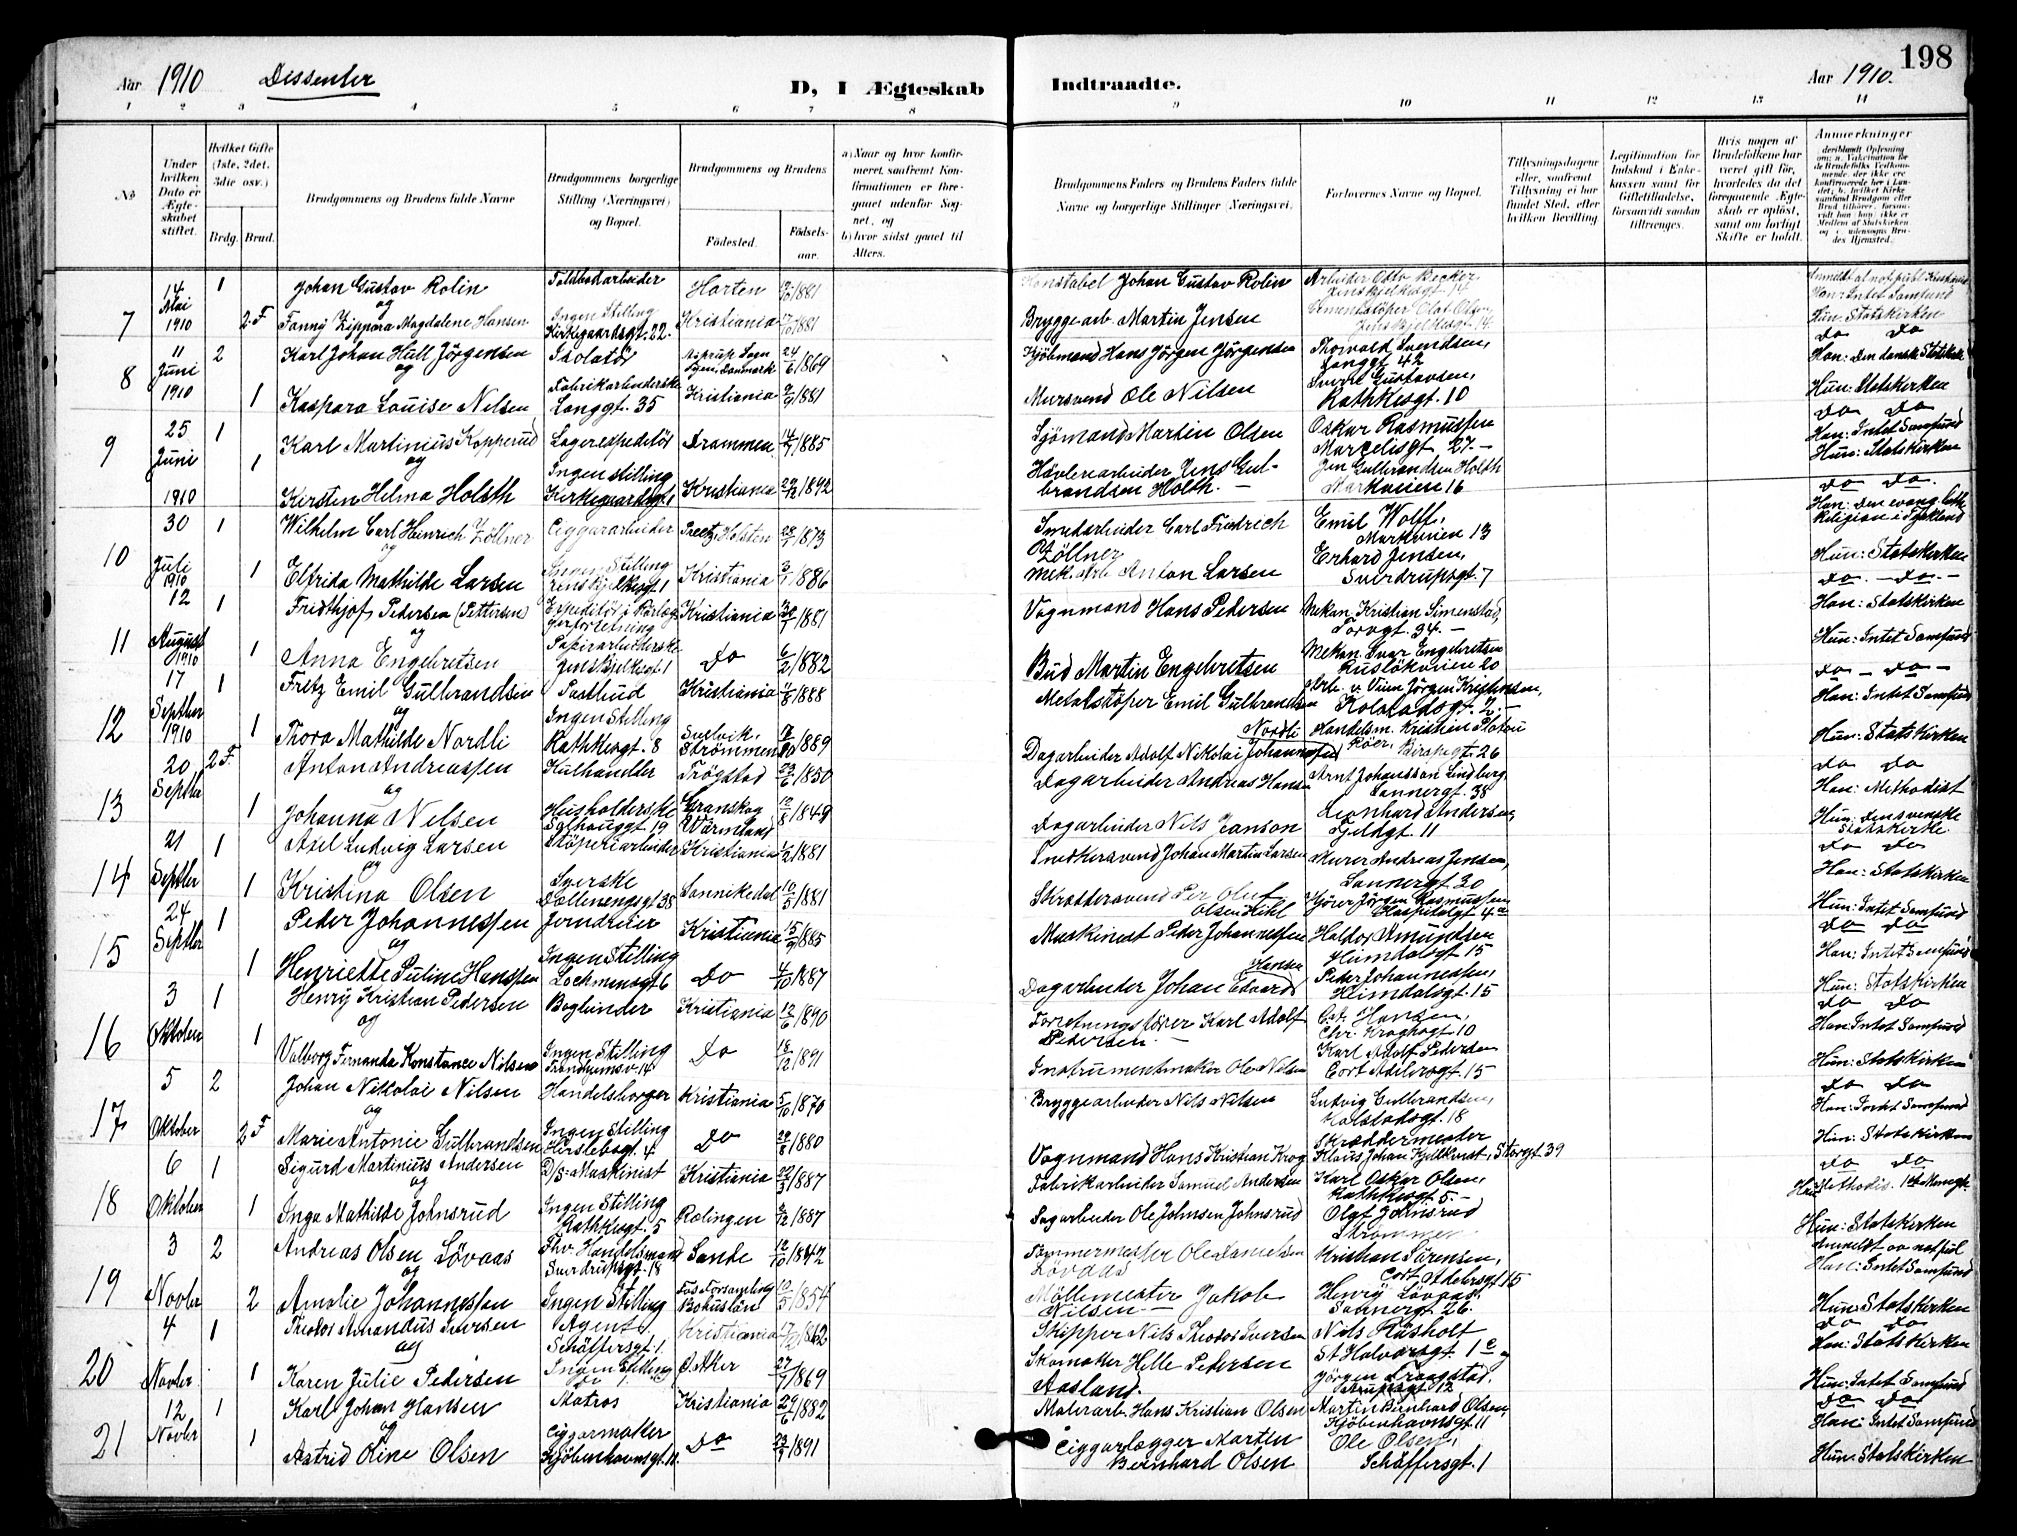 198
Aar 1910 Dissenter D, I Ægteskab Indtraadte. Aar 1910.
1 2 3 4 5 6 7 8 9 10 11 12 13 14
No
Under hvilken Dato er Ægte-skabet stiftet.
Hvilket Gifte (1ste, 2det, 3die osv.)
Brdg. Brud.
Brudgommens og Brudens fulde Navne
Brudgommens borgerlige Stilling (Næringsvei) og Bopæl.
Brudgommens og Brudens
Fødested. Fødsels-aar.
a) Naar og hvor konfir-meret, saafremt Kon-firmationen er fore-gaaet udenfor Sog-net, og
b) hvor sidst gaaet til Alters.
Brudgommens Faders og Brudens Faders fulde Navne og borgerlige Stillinger (Næringsvei.
Forlovernes Navne og Bopæl.
Tillysningsdagene eller, saafremt Tillysning ei har fundet Sted, efter hvilken Bevilling
Legitimation for Indskud i Enke-kassen samt for Giftetilladelse, forsaavidt saadan tiltrænges.
Hvis nogen af Brudefolkene har været gift før, hvorledes da det foregaaende Ægte-skab er opløst, samt om lovligt Skifte er holdt.
Anmærkninger
7 14 Mai 1910 1 Johan Gustav Rolin Toldbodarbeider Horten 1881 Konstabel Johan Gustav Rolin Arbeider Otto Becker Jenskjelsgt. 14 Han: Intet Samfund
og
2. F Fanny Zippora Magdalene Hansen Ingen Stilling Kirkegaardsgt. 22. Kristiania 1881 Bryggearb. Martin Jensen Hun: Statskirken
8 11 Juni 1910 2 Karl Johan Hull Jörgensen Isolatör 24/6 1869 Kjöbmand Hans Jörgen Jörgensen Thorvald Svendsen, Langgt. 42 Do Do Han: Den danske Statskirke
og
1 Kaspara Louise Nilsen Fabrikarbeiderske Langgt. 35 Kristiania 2/9 1881 Mursvend Ole Nilsen Sverre Gustavsen, Rathkesgt. 10 Hun: Statskirken
9 25 Juni 1910 1 Karl Martinius Kopperud Lagerexpeditör Drammen 1885 Sjömand Martin Olsen Oskar Rasmussen Marcelisgt 27.- Do Do Han: Intet Samfund
og
1 Kirsten Helma Holsth Ingen Stilling Kirkegaardsgt. 1 Kristiania 1892 Hövlerearbeider Jens Gul-brandsen Holth. Jens Gulbrandsen Holth Markveien 16 Hun: Statskirken
10 30 Juli 1910 1 Wilhelm Carl Heinrich Zöllner Ciggararbeider Preetz, Holsten 1873 Smedarbeider Carl Friedrich Zöllner Emil Wolff, Markveien 13 Do Do. Han: Den evang. luth. Religion i Tyskland
og
1 Elfrida Mathilde Larsen Ingen Stilling Jenskjelsgt. 1 Kristiania 1886 Mek. Arb. Anton Larsen Erhard Jensen, Sverdrupsgt. 7 Hun: Statskirken
11 12 August 1910 1 Fridthjof Pedersen (Pettersen) Kristiania 1881 Vognmand Hans Pedersen Mekan. Kristian Simenstad, Torvgt. 34.- Do - Do.- Han: Statskirken
og
1 Anna Engebretsen Papirarbeiderske Jenskjelsgt. 1 Do 6/2 1882 Bud Martin Engebretsen Mekan. Ivar Engebretsen Ruslökveien 20 Hun: Intet Samfund
12 17 Septbr 1910 1 Fretz Emil Gulbrandsen Postbud Kristiania 1888 Metalstöper Emil Gulbrandsen Kolstadsgt. 2.- Do - Do - Han: Intet Samfund
og
1 Thora Mathilde Nordli Ingen Stilling Rathkesgt. 8 Svelvik, Strömmen 1889 Dagarbeider Adolf Nikolai Johannessen Nordli Handelsm. Kristian Platou Röer, 26 Hun: Statskirken
13 20 Septbr 2 F. Anton Andreassen Kulhandler Trögstad 1850 Dagarbeider Andreas Hansen Arnt Johansson Lindberg Sannergt. 38 Do Do Han: Methodist
og
1 Johanna Nilsen Husholderske Solhauggt 19 Granskog Wärmland 1849 Dagarbeider Nils Janson Leonhard Andersen, Tjeldgt 11 Hun: Den svenske Statskirke
14 21 Septbr 1 Axel Ludvig Larsen Stöperiarbeider Kristiania 1881 Snedkersvend Johan Martin Larsen Murer Andreas Jensen, Sannergt. 30 Do Do Han: Statskirken
og
1 Kristina Olsen Syerske Dællenengsgt 35 Sannikedal 10/5 1881 Skræddersvend Per Oluf Olsen Kihl Kjörer Jörgen Rasmussen Hospitalsgt 4 Hun: Intet Samfund
15 24 Septbr 1 Peder Johannessen Jerndreier Kristiania 1885 Maskinist Peder Johannessen Haldor Amundsen Heimdalsgt 15 Do Do Han: Intet Samfund
og
1 Henriette Puline Hanssen Ingen Stilling Lochmensgt 6 Do 1887 Dagarbeider Johan Edvard Hansen Peder Johannessen, Heimdalsgt. 15 Hun: Statskirken
16 3 Oktober 1 Henry Kristian Pedersen Bogbinder Kristiania 12/6 1890 Forretningsförer Karl Adolf Pedersen.- Hansen, Chr. Kroghsgt 10 Do Do Han: Intet Samfund
og
1 Valborg Fernanda Konstance Nilsen Ingen Stilling Trondhemsv. 14 Do 18/12 1891 Instrumentmaker Ole Nilsen Karl Adolf Pedersen Cort Adelersgt. 15 Hun: Statskirken
17 5 Oktober 2 Johan Nikolai Nilsen Handelsborger Kristiania 5/10 1870 Bryggearbeider Nils Nilsen Ludvig Gulbrandsen, Kolstadsgt. 18 Do Do Han: Intet Samfund
og
2 F Marie Antonie Gulbrandsen Ingen Stilling Herslebsgt. 4 Do 1880 Vognmand Hans Kristian Krog Skræddermester Klaus Johan Kjellkvist, Storgt 39 Hun: Statskirken
18 6 Oktober 1 Sigurd Martinius Andersen D/S: Maskinist Kristiania 1887 Fabrikarbeider Samuel Andersen Karl Oskar Olsen, Rathkesgt 5.- Do Do Han: Methodist.
og
1 Inga Mathilde Johnsrud Ingen Stilling Rathkesgt. 5 Rælingen 1887 Sagarbeider Ole Johnsen Johnsrud Olaf Johnsrud Strömmen Hun: Statskirken
19 3 Novbr 2 Andreas Olsen Lövaas Fhv. Handelsmand Sverdrupsgt. 18 Sande 12/10 1842 Tömmermester Ole Danielsen Lövaas Kristian Sörensen, Cort Adelersgt 15 Han: Intet Samfund
og
2 Amalie Johannessen Ingen Stilling Fos Forsamling Bohuslän 1854 Möllemester Jakob Nilsen Henry Lövaas, Sannergt. 26. Hun: Statskirken
20 4 Novbr. 1 Theodor Amandus Iversen Agent Schäffersgt. 1. Kristiania 1862 Skipper Nils Theodor Iversen Nils Flasholt St Halvardsgt. 1 Do Do Han: Statskirken
og
1 Karen Julie Pedersen Ingen Stilling Ö. Aker 27/7 1869 Skomaker Helle Pedersen Aasland. Jörgen Draagstad, 12 Hun: Intet Samfund
21 12 Novbr 1 Karl Johan Hansen Matros Kristiania 29/6 1882 Malerarb. Hans Kristian Olsen Martin Bernhard Olsen, Kjöbenhavnsgt. 11 Do Do Han: Intet Samfund
og
1 Astrid Oline Olsen Ciggarmaker Kjöbenhavnsgt. 11. Do 1891 Ciggarlægger Martin Bernhard Olsen Ole Olsen, Schäffersgt. 1 Hun: Statskirken